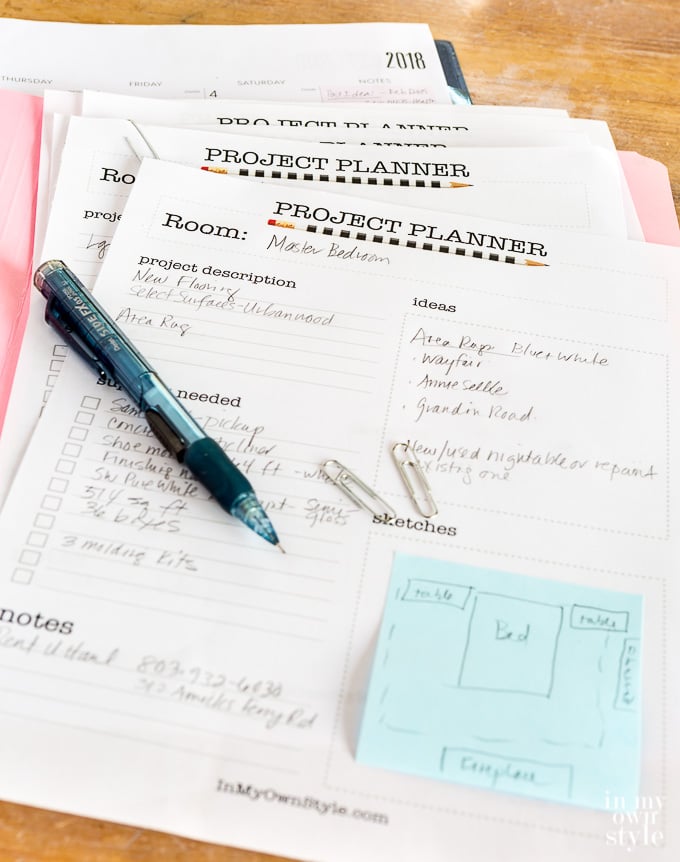 2018
THURSDAY FRIDAY SATURDAY NOTES
4
PROJECT PLANNER
PROJECT PLANNER
Ro
PROJECT PLANNER
Room: Master Bedroom
project description
New Flooring
Select Surfaces - Urban wood
Area Rug
ideas
Area Rugs Blue + White
· Wayfair
· Annie Selke
· Grandin Road
New/used nightable or repaint
existing one
needed
pickup
Shoe mo 4 ft - white
Finishing
SW Pure White Semi-
Gloss
574 sq ft
36 boxes
3 molding kits
sketches
table
Bed
table
Fireplace
notes
Rent U Haul 803-932-6030
Ferry Rd
InMyOwnStyle.com
in my
own
style